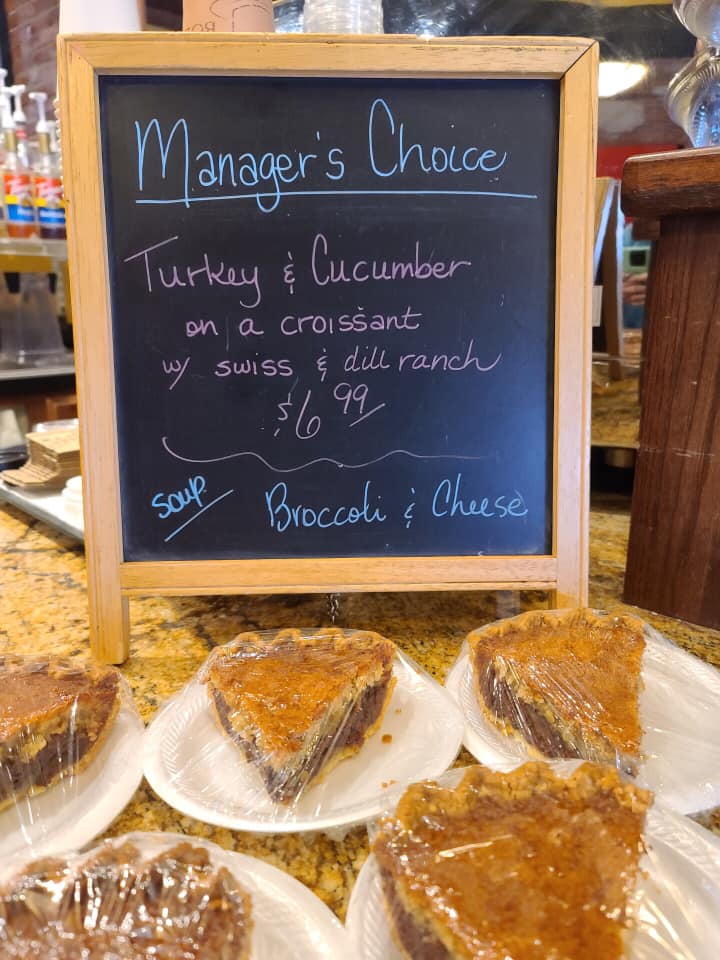 Manager's Choice
Turkey & Cucumber
on a croissant
w/ swiss & dill ranch
$6 99/
soup
Broccoli & Cheese